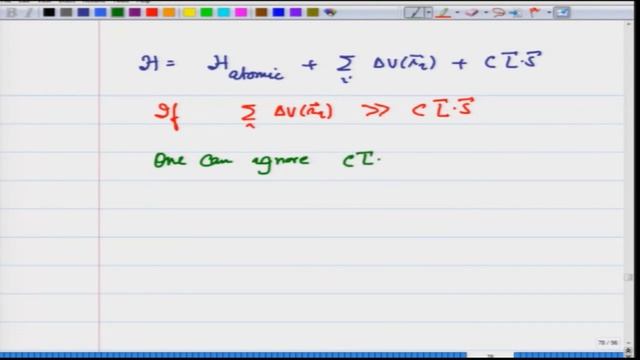 ℋ = ℋ_atomic + Σ_i ΔV(r⃗_i) + C L⃗·S⃗
If Σ_i ΔV(r⃗_i) >> C L⃗·S⃗
One can ignore C L⃗·
78 / 96
78